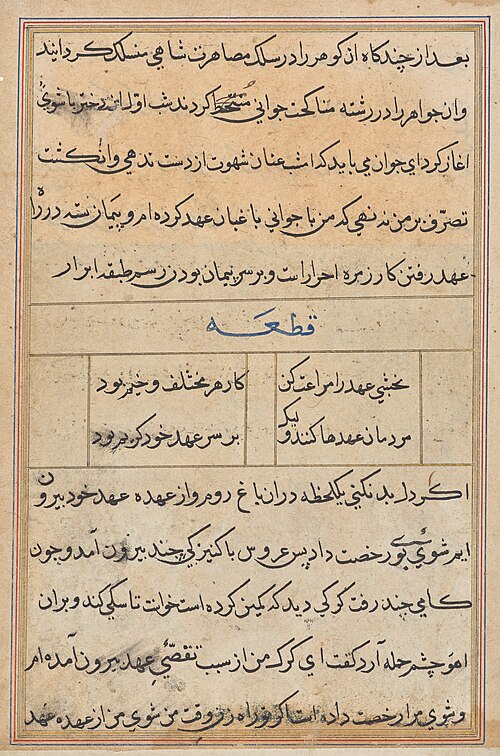 بعد از چندگاه ان گوهر را در سلک مصاهرت شاهی منسلک کردانیدند
وان جواهر را در رشته مناکحت جوانی کردند شب اول این دختر با شوی
اغاز کرد ای جوان می باید که امشب عنان شهوت از دست ندهی وانکشت
تصرّف بر من نه نهی که من با جوانی باغبان عهد کرده ام و پیمان بسته در راه
عهد رفتن کار زمره احرار است و بر سر پیمان بودن رسم طبقه ابرار
قطعَه
نخشبی عهد را مراعت کن
کار هر مختلف وخیم بود
مردمان عهدها کنند و لیک
بر سر عهد خود کریم رود
اکر دل بد نکنی یکلحظه دران باغ روم و از عهده عهد خود بیرون
ایم شوی رخصت داد پس عروس با کنیزکی چند بیرون آمد و چون
کامی چند رفت کرکی دید که کمین کرده است خواست تا سکی کند و بران
اهو چشم حمله آرد کفت ای کرک من از سبب تقصّی عهد بیرون آمده ام
و شوی مرا رخصت داده است اکر تو راه زنی وقت من شوی من از عهده عهد